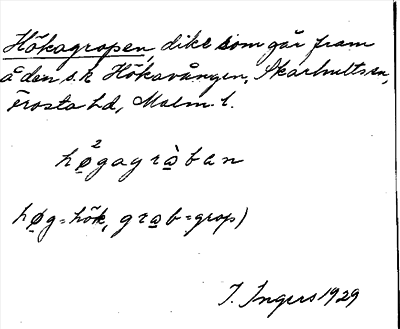 Hökagropen, dike som går fram
å den s.k Hökavången, Skarhults sn,
Frosta hd, Malm. l.
hø̱²gagrà̱ban
hø̱g=hök, gra̱b=grop)
I. Ingers 1929